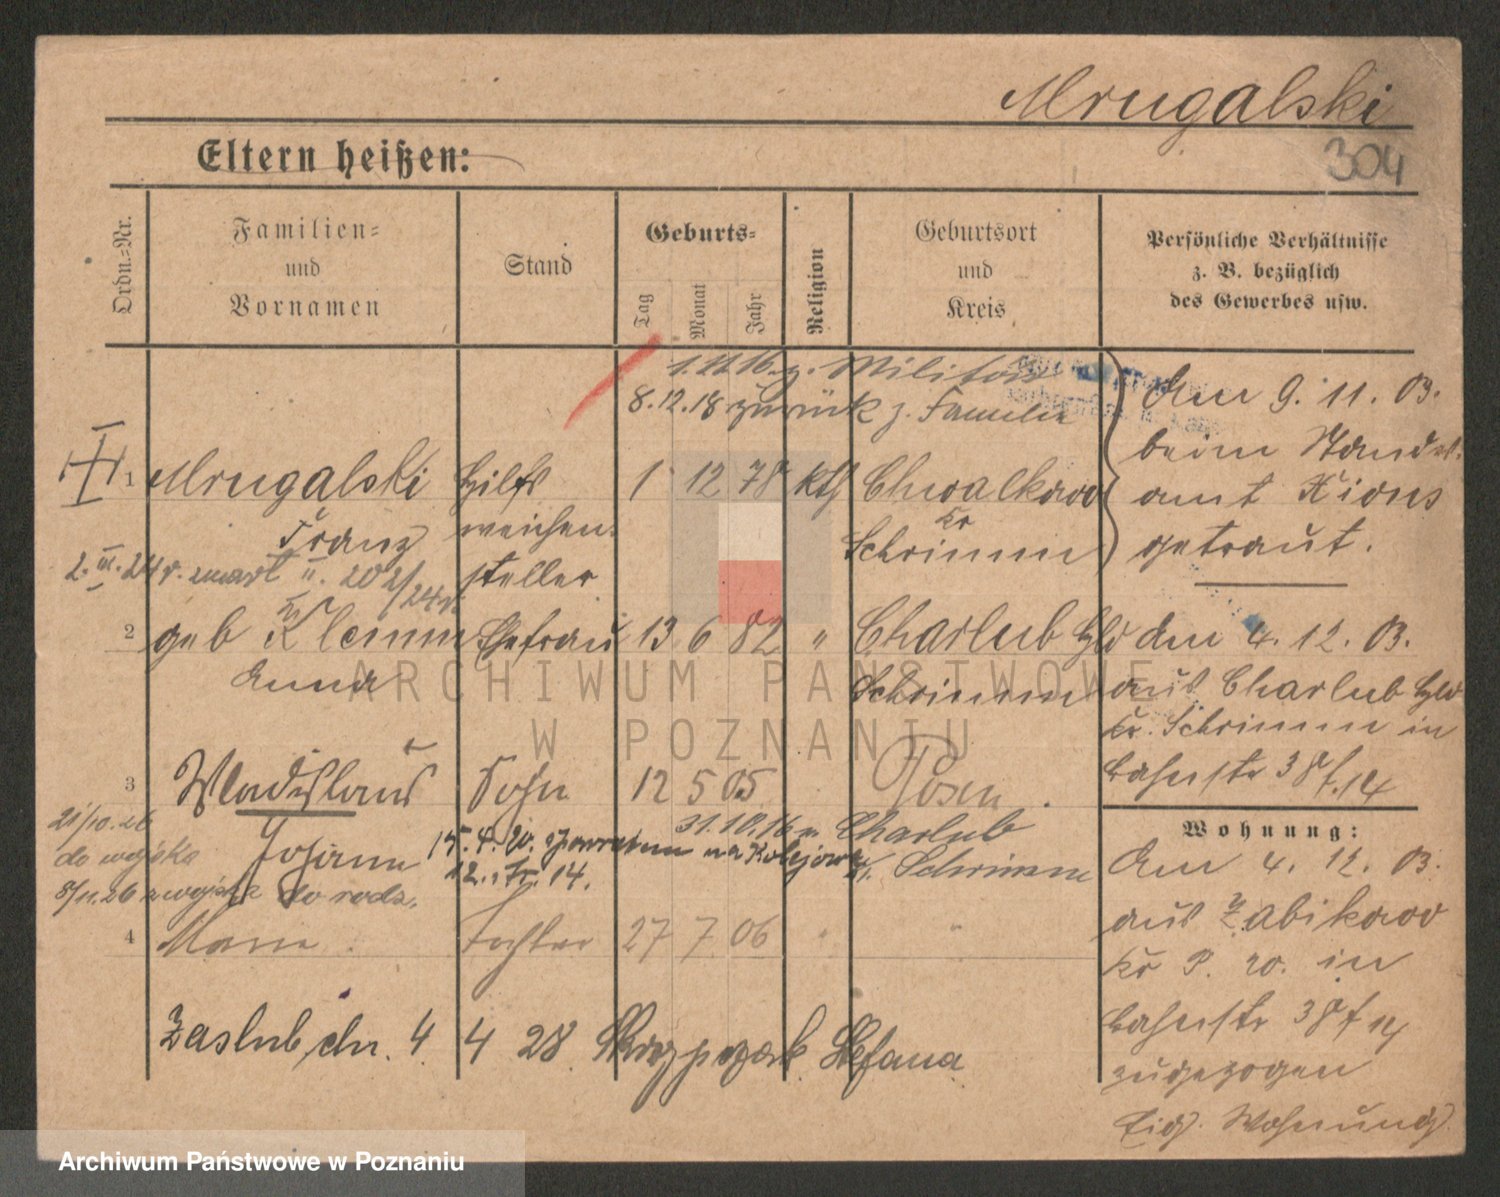 Mrugalski
304
Eltern heißen:
Ordn.-Nr.
Familien-
und
Vornamen
Stand
Geburts-
Tag
Monat
Jahr
Religion
Geburtsort
und
Kreis
Persönliche Verhältnisse
z. B. bezüglich
des Gewerbes usw.
1.11.16. z. Militär
8.12.18 zurück z. Familie
1 Mrugalski Hilfs 1 12 78 kth Chwalkowo
Franz weichen- Kr
steller Schrimm
2. III. 24 r. zmarł 202/24 r.
2 geb Klemm Ehefrau 13 6 82 " Charlub Hld
Anna Schrimm
3 Wladislaus Sohn 12 5 05 Posen
Johann
21/10.26
do wojska
8/11.26 z wojska do rodz.
31.10.16 n Charlub
Kr. Schrimm
15.4.20. z powrotem na Kolejowa
12. Fr. 14.
4 Marie Tochter 27 7 06 " "
Zaślub. dn. 4 4 28 Stefana
Am 9. 11. 03.
beim Standes-
amt Xions
getraut.
Am 4. 12. 03.
aus Charlub Hld
Kr. Schrimm in
Bahnstr 38 f. 14
Wohnung:
Am 4. 12. 03.
aus Zabikowo
Kr P. W. in
Bahnstr 38 f 14
zugezogen
Eig. Wohnung.
ARCHIWUM PAŃSTWOWE
W POZNANIU
Archiwum Państwowe w Poznaniu